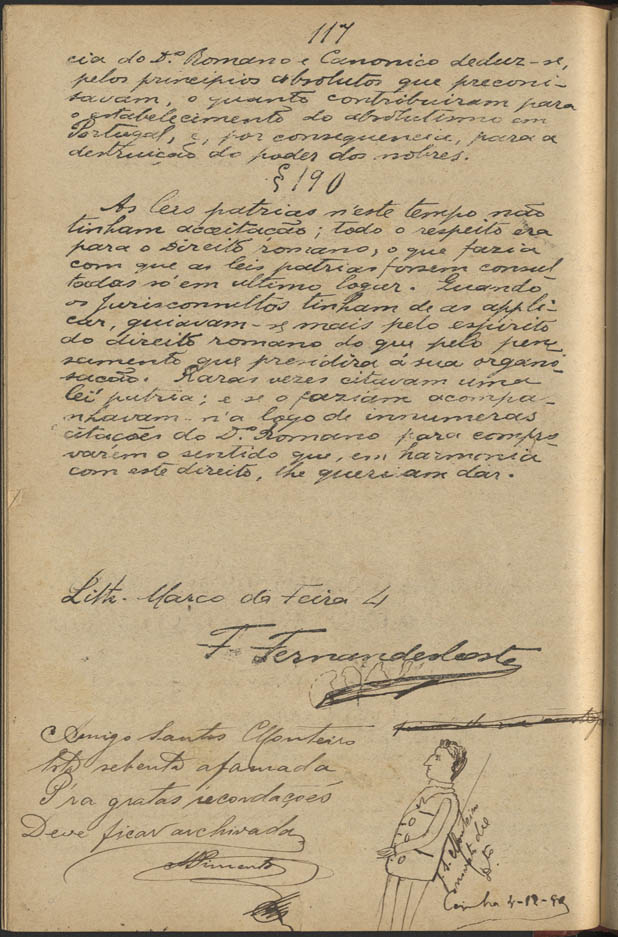 117
cia do D.º Romano e Canonico deduz-se,
pelos principios absolutos que preconi-
savam, o quanto contribuiram para
o estabelecimento do absolutismo em
Portugal, e, por consequencia, para a
destruição do poder dos nobres.
§ 190
As leis patrias n'este tempo não
tinham acceitação; todo o respeito era
para o Direito romano, o que fazia
com que as leis patrias fossem consul
tadas só em ultimo logar. Quando
os Jurisconsultos tinham de as appli-
car, guiavam-se mais pelo espirito
do direito romano do que pelo pen-
samento que presidira á sua organi-
sação. Raras vezes citavam uma
lei patria; e se o faziam acompa-
nhavam-n'a logo de innumeras
citações do D.º Romano para compro-
varem o sentido que, em harmonia
com este direito, lhe queriam dar.
Lith. Marco da Feira 4
F. Fernandes Costa
Amigo Santos Monteiro
Esta sebenta afamada
P'ra gratas recordações
Deve ficar archivada
Pimenta
Monteiro
Coimbra 4-12-9